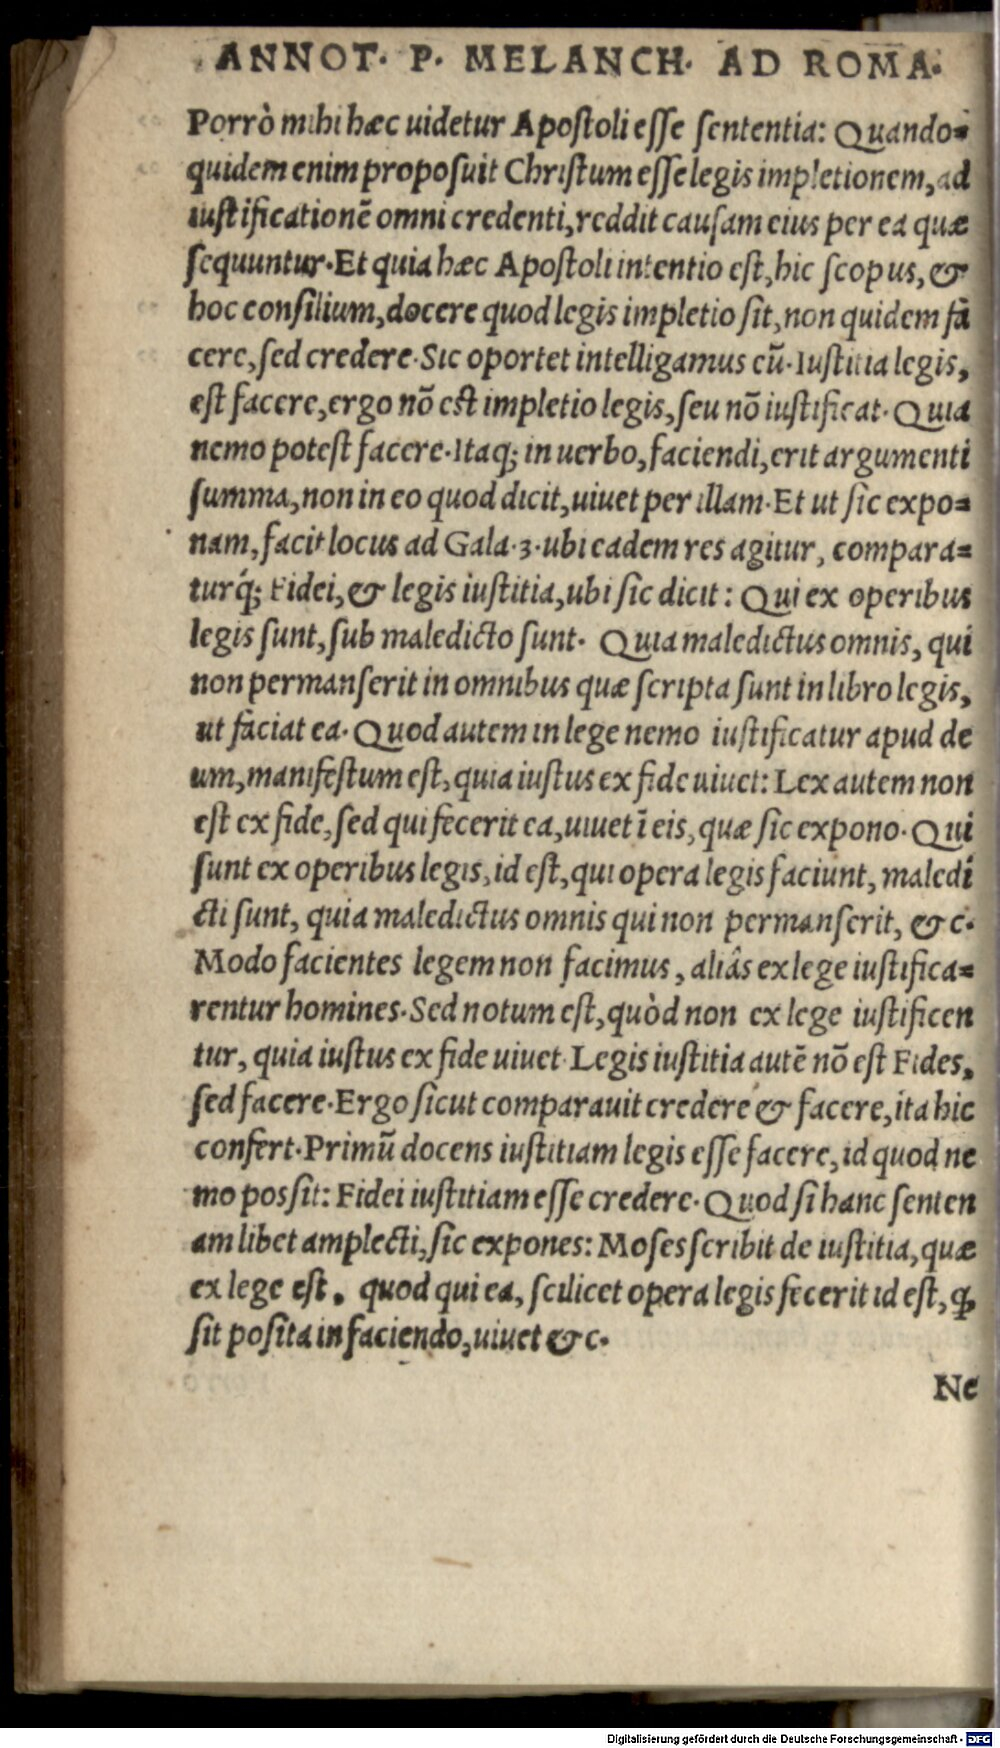 ANNOT· P. MELANCH· AD ROMA·
Porrò mihi hæc uidetur Apoſtoli eſſe ſententia: Quando=
quidem enim propoſuit Chriſtum eſſe legis impletionem, ad
iuſtificationẽ omni credenti, reddit cauſam eius per ea quæ
ſequuntur·Et quia hæc Apoſtoli intentio eſt, hic ſcopus, &
hoc conſilium, docere quod legis impletio ſit, non quidem fa
cere, ſed credere·Sic oportet intelligamus cũ·Iuſtitia legis,
eſt facere, ergo nõ eſt impletio legis, ſeu nõ iuſtificat·Quia
nemo poteſt facere·Itaq; in uerbo, faciendi, erit argumenti
ſumma, non in eo quod dicit, uiuet per illam·Et ut ſic expo=
nam, facit locus ad Gala·3·ubi eadem res agitur, compara=
turq́; Fidei, & legis iuſtitia, ubi ſic dicit: Qui ex operibus
legis ſunt, ſub maledicto ſunt· Quia maledictus omnis, qui
non permanſerit in omnibus quæ ſcripta ſunt in libro legis,
ut faciat ea·Quod autem in lege nemo iuſtificatur apud de
um, manifeſtum eſt, quia iuſtus ex fide uiuet: Lex autem non
eſt ex fide, ſed qui fecerit ea, uiuet ĩ eis, quæ ſic expono·Qui
ſunt ex operibus legis, id eſt, qui opera legis faciunt, maledi
cti ſunt, quia maledictus omnis qui non permanſerit, & c·
Modo facientes legem non facimus, aliâs ex lege iuſtifica=
rentur homines·Sed notum eſt, quòd non ex lege iuſtificen
tur, quia iuſtus ex fide uiuet·Legis iuſtitia autẽ nõ eſt Fides,
ſed facere·Ergo ſicut comparauit credere & facere, ita hic
confert·Primũ docens iuſtitiam legis eſſe facere, id quod ne
mo poſſit: Fidei iuſtitiam eſſe credere·Quod ſi hanc ſenten
am libet amplecti, ſic expones: Moſes ſcribit de iuſtitia, quæ
ex lege eſt. quod qui ea, ſcilicet opera legis fecerit id eſt, ꝙ
ſit poſita in faciendo, uiuet & c·
Ne
Digitalisierung gefördert durch die Deutsche Forschungsgemeinschaft - DFG